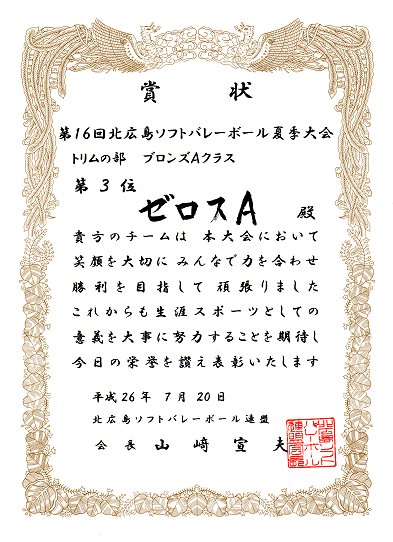 賞状
第16回北広島ソフトバレーボール夏季大会
トリムの部 ブロンズAクラス
第3位
ゼロスA 殿
貴方のチームは 本大会において
笑顔を大切に みんなで力を合わせ
勝利を目指して 頑張りました
これからも生涯スポーツとしての
意義を大事に努力することを期待し
今日の栄誉を讃え表彰いたします
平成26年 7月 20日
北広島ソフトバレーボール連盟
会長 山﨑宣夫